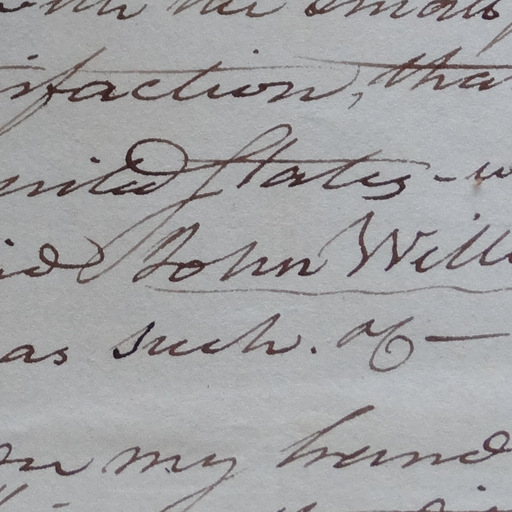 isfaction, tha
nited States - w
id John Will
as such. &c —
on my hand